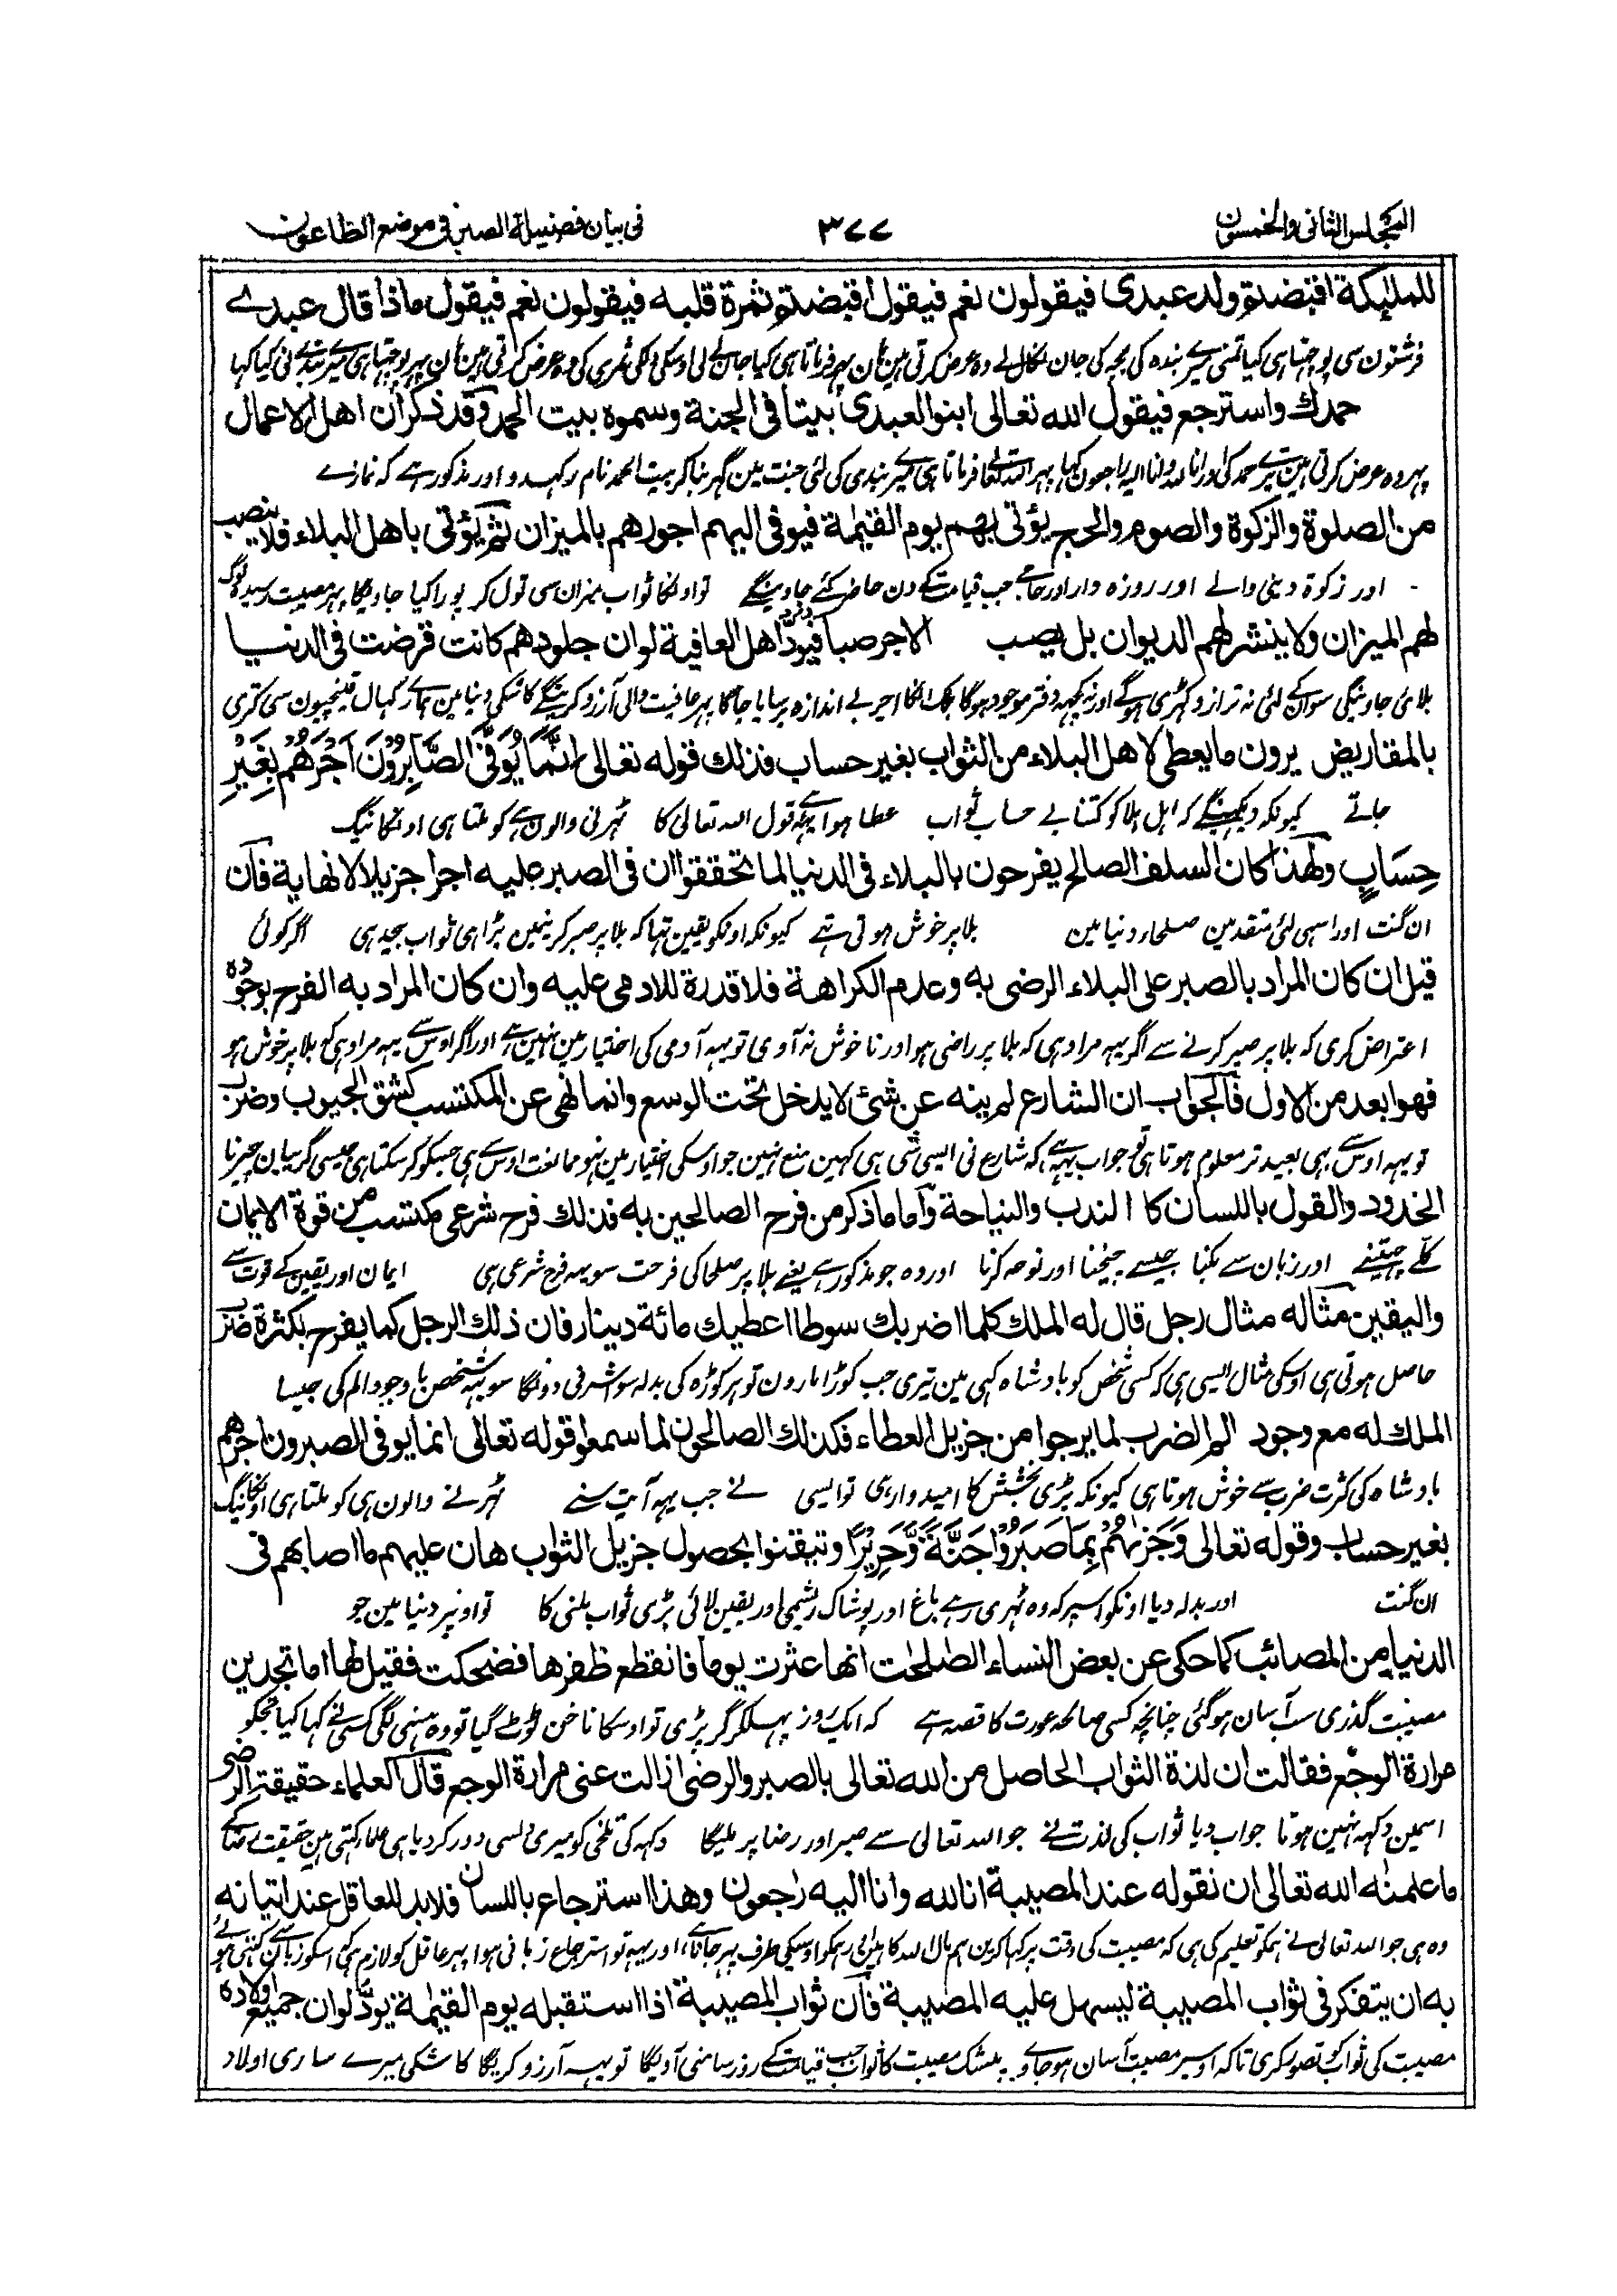 المجلس الثانى والخمسون
٣٧٧
فى بيان فضيلة الصبر فى موضع الطاعون
للملئكة اقبضتم ولد عبدى فيقولون نعم فيقول اقبضتم ثمرة قلبه فيقولون نعم فيقول ماذا قال عبدے
فرشتون سی پوچہتا ہی کیا تمنی میرے بندہ کی بچہ کی جان نکال لے وہ عرض کرتی ہین ہان پہر فرماتا ہی کیا جان لی اوسکی دلکی ثمری کی وہ عرض کرتی ہین ہان پہر پوچہتا ہی میرے بندے نی کیا کہا
حمدك واسترجع فيقول الله تعالى ابنوا لعبدى بيتا فى الجنة وسموه بيت الحمد وقد ذكر ان اهل الاعمال
پہر وہ عرض کرتی ہین تیرے حمد کی اور انا لله وانا اليه راجعون کہا پہر اللہ تعالے فرماتا ہی میرے بندی کی لئی جنت مین گہر بنا کر بیت الحمد نام رکہدو اور مذکور ہے کہ نمازے
من الصلوة والزكوة والصوم والحج يؤتى بهم يوم القيمة فيوفى اليهم اجورهم بالميزان ثم يؤتى باهل البلاء فلا ينصب
اور زکوة دینی والے اور روزہ دار اور حاجے جب قیامت کے دن حاضر کئے جاوینگے تو اونکا ثواب میزان سی تول کر پورا کیا جاویگا پہر مصیبت رسیدہ لوگ
لهم الميزان ولا ينشر لهم الديوان بل يصب الاجر صبا فيودّ اهل العافية لو ان جلودهم كانت قرضت فى الدنيا
بلائی جاوینگی سو ان کے لئی نہ ترازو کہڑی ہوگے اور نہ کچہہ دفتر موجود ہوگا بلک انکا اجر بے اندازہ برسایا جائگا پہر عافیت والی آرزو کرینگے کاشکی دنیا مین ہمارے کہال قینچیون سی کتری
بالمقاريض يرون ما يعطى لاهل البلاء من الثواب بغير حساب فذلك قوله تعالى اِنَّمَا يُوَفَّى الصَّابِرُوْنَ اَجْرَهُمْ بِغَيْرِ
جاتے کیونکہ دیکہینگے کہ اہل بلا کو کتنا بے حساب ثواب عطا ہوا ہے یہہ قول اللہ تعالی کا ٹہرنی والون ہے کو ملتا ہی اونکا نیگ
حِسَابٍ ولهذا كان السلف الصالح يفرحون بالبلاء فى الدنيا لما تحققوا ان فى الصبر عليه اجرا جزيلا لا نهاية فان
ان گنت اور اسی لئی متقدمین صلحاء دنیا مین بلا پر خوش ہوتی تہے کیونکہ اونکو یقین تہا کہ بلا پر صبر کرنیمین بڑا ہی ثواب بیحد ہی اگر کوئی
قيل ان كان المراد بالصبر على البلاء الرضى به وعدم الكراهة فلا قدرة للادمى عليه وان كان المراد به الفرح بوجوده
اعتراض کری کہ بلا پر صبر کرنے سے اگر یہہ مراد ہی کہ بلا پر راضی ہو اور ناخوش نہ آوی تو یہہ آدمی کی اختیار مین نہین ہے اور اگر اوس سے یہہ مراد ہی کہ بلا پر خوش ہو
فهو ابعد من الاول فالجواب ان الشارع لم ينه عن شئ لا يدخل تحت الوسع وانما نهى عن المكتسب كشق الجيوب وضرب
تو یہہ اوس سے بہی بعید تر معلوم ہوتا ہی تو جواب یہہ ہے کہ شارع نی ایسی شی سی کہین منع نہین جو اوسکی اختیار مین نہو ممانعت اوس سے ہی جسکو کر سکتا ہی جیسی گریبان چیرنا
الخدود والقول باللسان كا الندب والنياحة وأما ما ذكر من فرح الصالحين به فذلك فرح شرعى مكتسب من قوة الايمان
کلّے پیٹنے اور زبان سے بکنا جیسے چیخنا اور نوحہ کرنا اور وہ جو مذکور ہے یعنے بلا پر صلحا کی فرحت سو یہہ فرح شرعی ہی ایمان اور یقین کے قوت سے
واليقين مثاله مثال رجل قال له الملك كلما اضربك سوطا اعطيك مائة دينار فان ذلك الرجل كما يفرح بكثرة ضرب
حاصل ہوتی ہی اوسکی مثال ایسی ہی کہ کسی شخص کو بادشاہ کہی مین تیری جب کوڑا مارون تو ہر کوڑہ کی بدلہ سو اشرفی دونگا سو یہہ شخص باوجود الم کی جیسا
الملك له مع وجود الم الضرب لما يرجوا من جزيل العطاء فكذلك الصالحون لما سمعوا قوله تعالى انما يوفى الصبرون اجرهم
بادشاہ کی کثرت ضرب سے خوش ہوتا ہی کیونکہ بڑی بخشش کا امیدوار ہی تو ایسی نے جب یہہ آیت سنے ٹہرنے والون ہی کو ملتا ہی اونکا نیگ
بغير حساب وقوله تعالى وَجَزٰىهُمْ بِمَا صَبَرُوْا جَنَّةً وَّحَرِيْرًا وتيقنوا بحصول جزيل الثواب هان عليهم ما اصابهم فى
ان گنت اور بدلہ دیا اونکو اسپر کہ وہ ٹہری رہے باغ اور پوشاک ریشمی اور یقین لائی بڑی ثواب ملنی کا تو اونپر دنیا مین جو
الدنيا من المصائب كما حكى عن بعض النساء الصلحت انها عثرت يوما فانقطع ظفرها فضحكت فقيل لها اما تجدين
مصیبت گذری سب آسان ہوگئی چنانچہ کسی صالحہ عورت کا قصہ ہے کہ ایک روز پہسلکر گر پڑی تو اوسکا ناخن ٹوٹ گیا تو وہ ہنسی لگی کسی نے کہا کیا تجکو
مرارة الوجع فقالت ان لذة الثواب الحاصل من الله تعالى بالصبر والرضى ازالت عنى مرارة الوجع قال العلماء حقيقة الرضى
اسمین دکہہ نہین ہوتا جواب دیا ثواب کی لذت نے جو اللہ تعالی سے صبر اور رضا پر ملیگا دکہہ کی تلخی کو میری دلسی دور کر دیا ہی علما کہتی ہین حقیقت رضا کے
ما علمنه الله تعالى ان نقوله عند المصيبة انا لله وانا اليه رٰجعون وهذا استرجاع باللسان فلا بد للعاقل عند اتيانه
وہ ہی جو اللہ تعالی نے ہمکو تعلیم کی ہی کہ مصیبت کی وقت پر کہا کرین ہم مال اللہ کا ہین اور ہمکو اوسیکی طرف پہر جانا ہے، اور یہہ تو استرجاع زبانی ہوا پہر عاقل کو لازم ہی کہ اسکو زبان سے کہتی ہوئے
به ان يتفكر فى ثواب المصيبة ليسهل عليه المصيبة فان ثواب المصيبة اذا استقبله يوم القيمة يودّ لو ان جميع اولاده
مصیبت کی ثواب کو تصور کری تاکہ اوسپر مصیبت آسان ہوجاوے بیشک مصیبت کا ثواب جب قیامت کے روز سامنی آویگا تو یہہ آرزو کریگا کاشکی میرے ساری اولاد